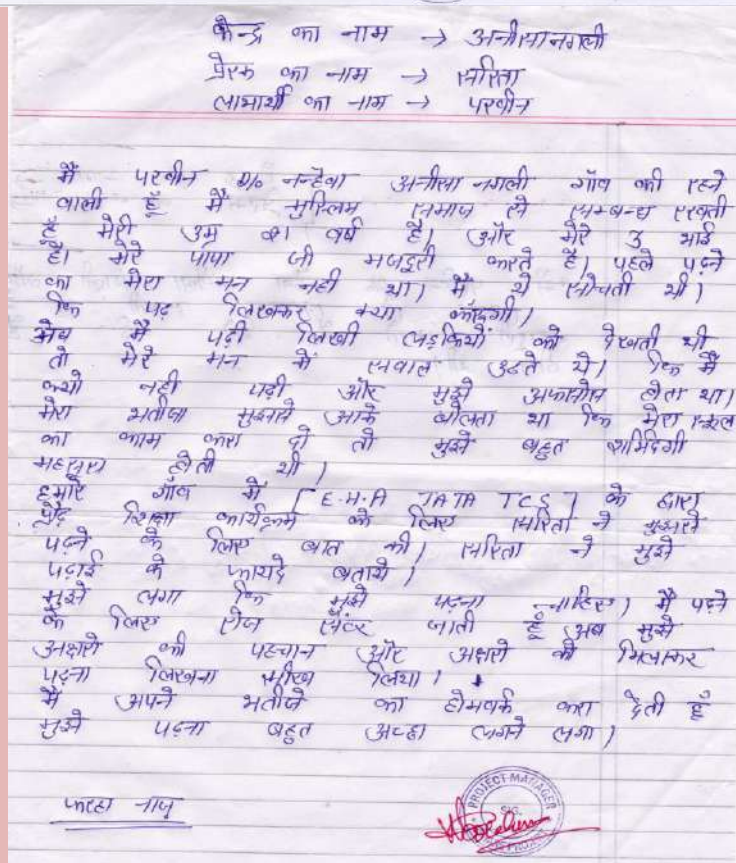 केन्द्र का नाम → अनीसा नगली
प्रेरक का नाम → सरिता
लाभार्थी का नाम → परवीन
मैं परवीन D/o नन्हेवा अनीसा नगली गाँव की रहने
वाली हूँ मैं मुस्लिम समाज से सम्बन्ध रखती
हूँ मेरी उम्र 21 वर्ष है। और मेरे 3 भाई
है। मेरे पापा जी मजदूरी करते है। पहले पढ़ने
का मेरा मन नही था। मैं ये सोचती थी।
कि पढ़ लिखकर क्या करूंगी।
मैं पढ़ी लिखी लड़कियों को देखती थी
तो मेरे मन में सवाल उठते थे। कि मैं
क्यो नही पढ़ी और मुझे अफसोस होता था।
मेरा भतीजा मुझसे आके बोलता था कि मेरा स्कूल
का काम करा दो तो मुझे बहुत शर्मिदगी
महसूस होती थी।
हमारे गाँव में [ E.H.A TATA TCS ] के द्वारा
प्रौढ़ शिक्षा कार्यक्रम के लिए सरिता ने मुझसे
पढ़ने के लिए बात की। सरिता ने मुझे
पढ़ाई के फायदे बताये।
मुझे लगा कि मुझे पढ़ना चाहिए। मैं पढ़ने
के लिए रोज सेंटर जाती हूँ अब मुझे
अक्षरो की पहचान और अक्षरो को मिलाकर
पढ़ना लिखना सीख लिया।
मैं अपने भतीजे का होमवर्क करा देती हूँ
मुझे पढ़ना बहुत अच्छा लगने लगा।
फरहा नाज़
PROJECT MANAGER